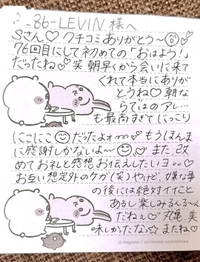 86-LEVIN 様へ
Sさん♡ クチコミありがとう〜
76回目にして初めての「おはよう！」
だったね♡笑 朝早くから会いに来て
くれて本当にありが
とうね♡ 朝な
らではのアレ…
も最高すぎてにっこり
にこにこ だったよォﾊｰﾄ もうほんま
に感謝しかないよ〜 また、改
めてお礼と感想お伝えしたいヨ
お互い想定外のケガ(笑)やけど、嫌な事
の後には絶対イイこと
あるし楽しみるん〜
だねぇ♡丸亀 美
味しかったな☆またね♡